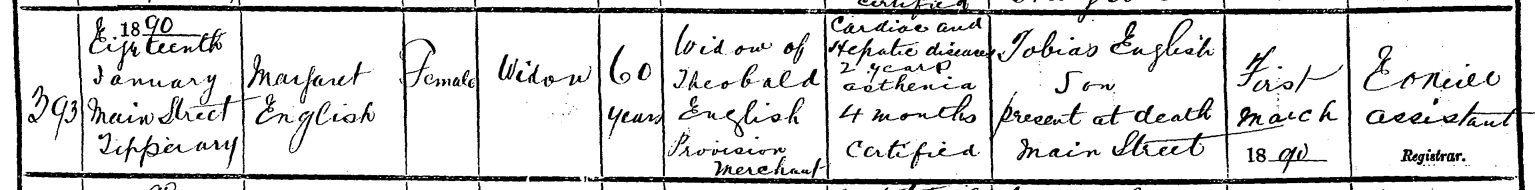 393
1890
Eighteenth
January
Main Street
Tipperary
Margaret
English
Female
Widow
60
years
Widow of
Theobald
English
Provision
Merchant
Certified
Cardiac and
Hepatic diseases
2 years
asthenia
4 months
Certified
Tobias English
Son
present at death
Main Street
First
March
1890
E O'Neill
assistant
Registrar.